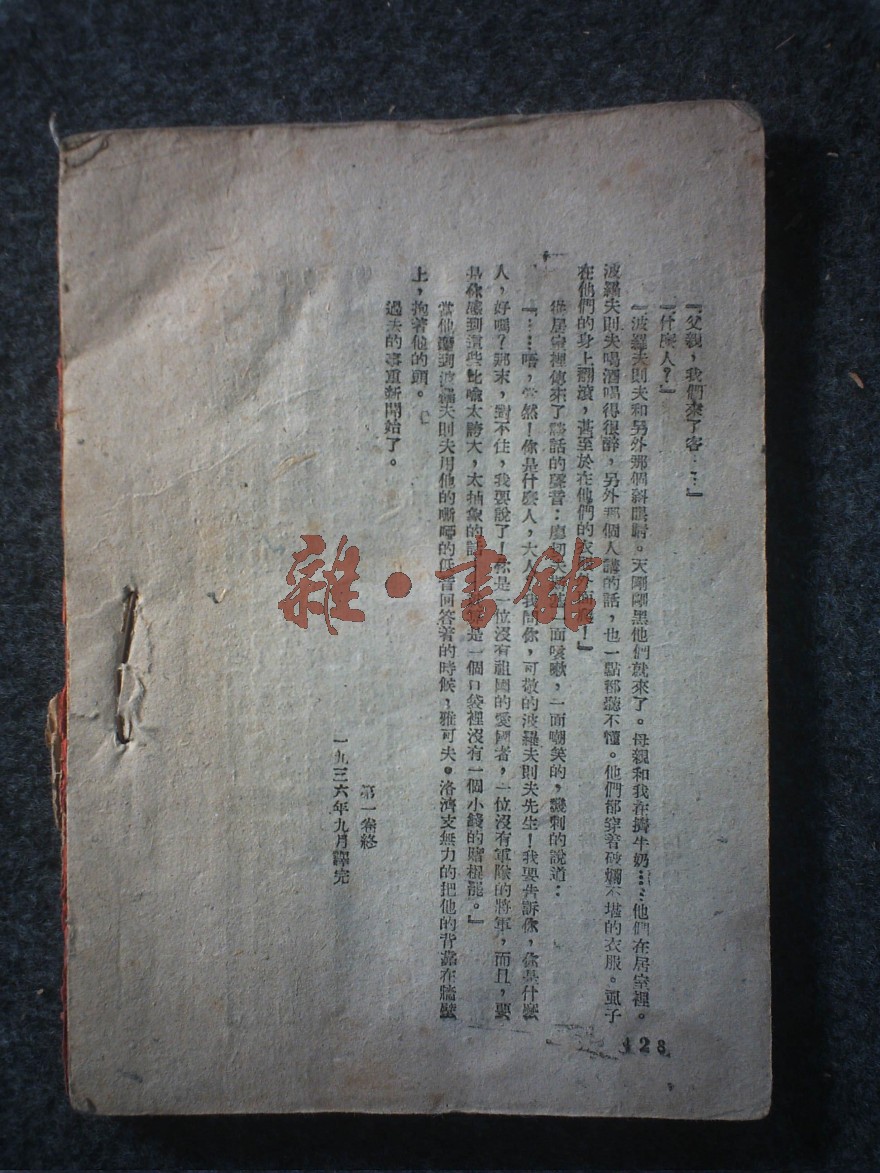 『父親，我們來了客……』
『什麼人？』
『波羅夫則夫和另外那個斜眼睛。天剛剛黑他們就來了。母親和我在擠牛奶……他們在居室裡。
波羅夫則夫喝酒喝得很醉，另外那個人講的話，也一點都聽不懂。他們都穿着破爛不堪的衣服。虱子
在他們的身上翻滾，甚至於在他們的衣
從居室裡傳來了談話的聲音：一面咳嗽，一面嘲笑的，譏刺的說道：
『……唔，當然！你是什麼人，大人？我問你，可敬的波羅夫則夫先生！我要告訴你，你是什麼
人，好嗎？那末，對不住，我要說了！你是一位沒有祖國的愛國者，一位沒有軍隊的將軍，而且，要
是你感到這些比喻太誇大，太抽象的話是一個口袋裡沒有一個小錢的賭棍罷。』
當他聽到波羅夫則夫用他的嘶啞的低音回答着的時候，雅可夫。洛濟支無力的把他的背靠在牆壁
上，抱着他的頭。
過去的事重新開始了。
第一卷終
一九三六年九月譯完
428
雜·書館